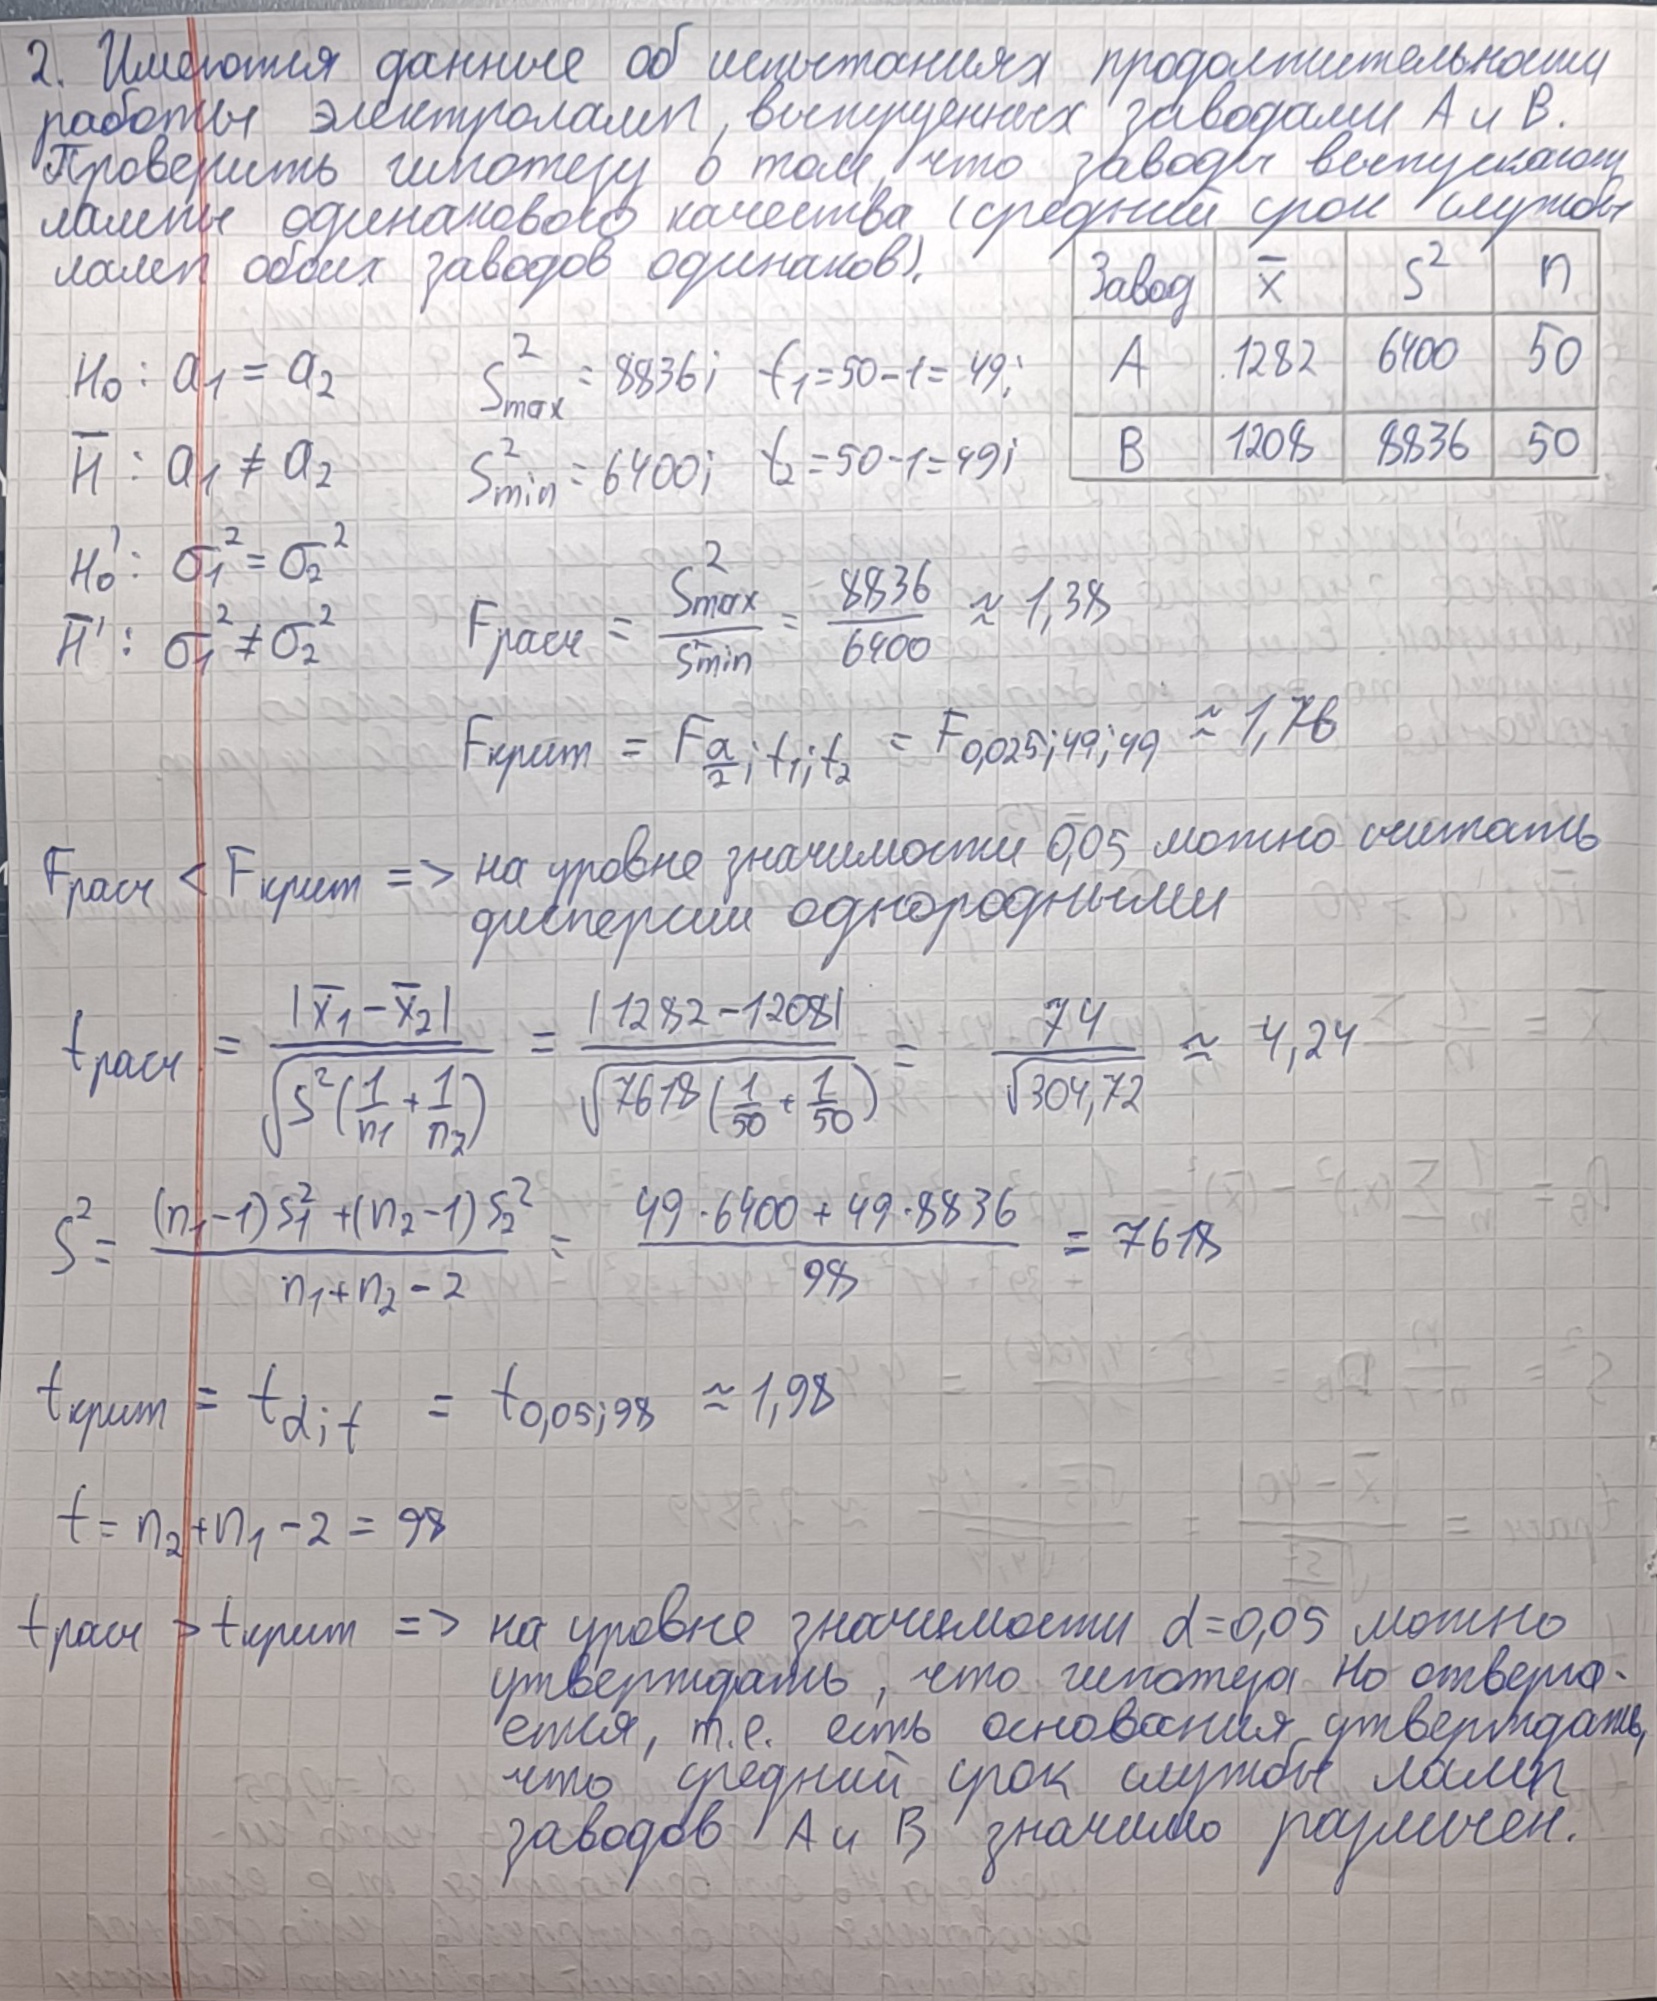 2. Имеются данные об испытаниях продолжительности
работы электроламп, выпущенных заводами А и В.
Проверить гипотезу о том, что заводы выпускают
лампы одинакового качества (средний срок службы
ламп обоих заводов одинаков).
Завод x̄ S² n
A 1282 6400 50
B 1208 8836 50
H₀: a₁ = a₂ S²max = 8836; f₁ = 50-1 = 49;
H̄: a₁ ≠ a₂ S²min = 6400; f₂ = 50-1 = 49;
H₀': σ₁² = σ₂²
H̄': σ₁² ≠ σ₂² Fрасч = S²max / S²min = 8836 / 6400 ≈ 1,38
Fкрит = F α/2; f₁; f₂ = F 0,025; 49; 49 ≈ 1,76
Fрасч < Fкрит => на уровне значимости 0,05 можно считать
дисперсии однородными
tрасч = |x̄₁ - x̄₂| / √(S²(1/n₁ + 1/n₂)) = |1282 - 1208| / √(7618(1/50 + 1/50)) = 74 / √304,72 ≈ 4,24
S² = ((n₁-1)S₁² + (n₂-1)S₂²) / (n₁+n₂-2) = (49·6400 + 49·8836) / 98 = 7618
tкрит = t α; f = t 0,05; 98 ≈ 1,98
f = n₂ + n₁ - 2 = 98
tрасч > tкрит => на уровне значимости α = 0,05 можно
утверждать, что гипотеза H₀ отверга-
ется, т.е. есть основания утверждать,
что средний срок службы ламп
заводов А и В значимо различен.